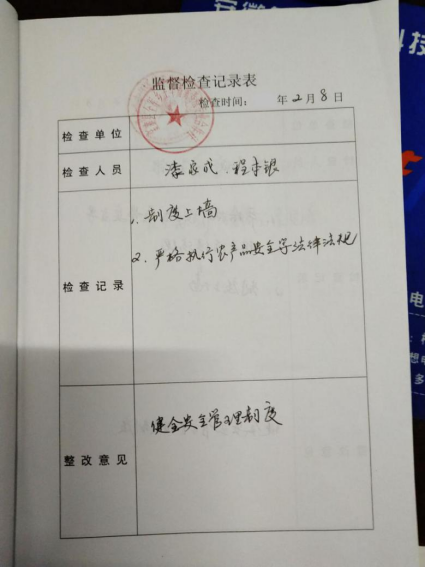 监督检查记录表
检查时间: 年2月8日
检查单位
检查人员 李家成、程本银
检查记录
1、制度上墙
2、严格执行农产品安全等法律法规
整改意见
健全安全管理制度
科技
电